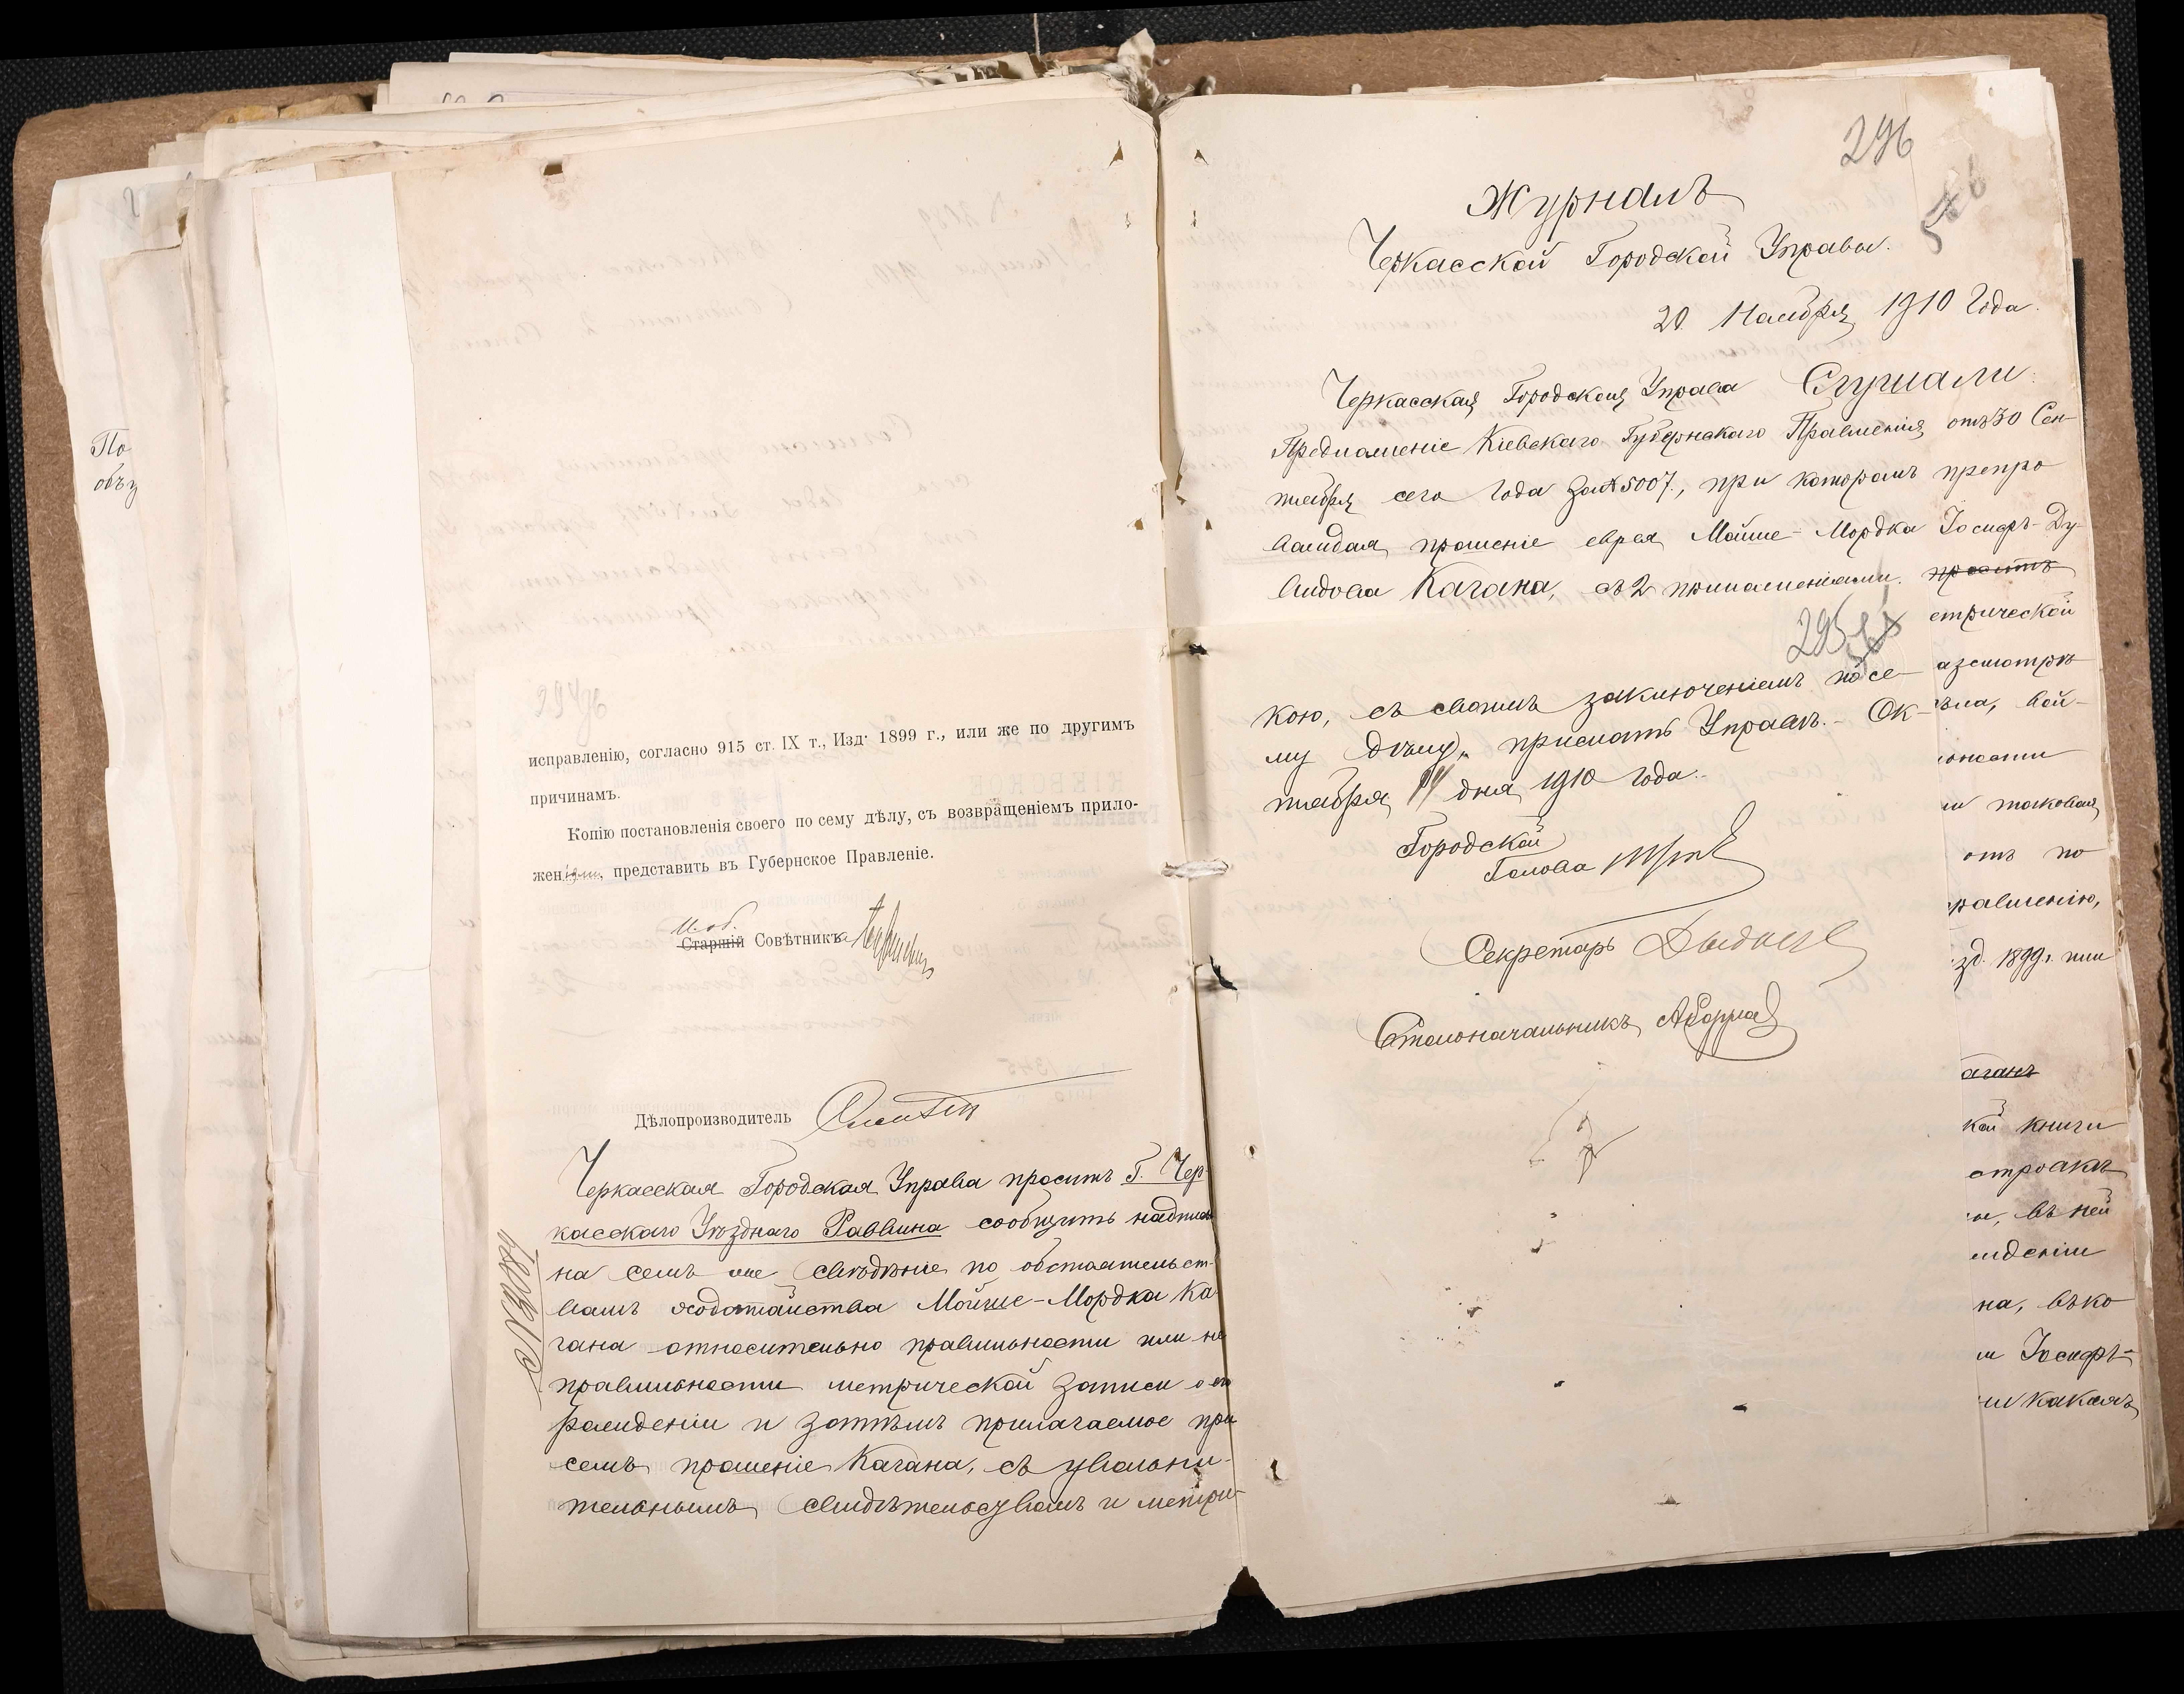 По
объ
исправленію, согласно 915 ст. IX т., Изд. 1899 г., или же по другимъ
причинамъ.
Копію постановленія своего по сему дѣлу, съ возвращеніемъ прило-
женіями, представить въ Губернское Правленіе.
И. об.
Старшій Совѣтника
Дѣлопроизводитель
Черкасская Городская Управа проситъ Г. Чер-
касскаго Уѣзднаго Раввина сообщить надписью
на семъ же свѣдѣніе по обстоятельст-
вамъ ходатайства Мойше-Мордка Ка-
гана относительно правильности или не
правильности метрической записи о его
рожденіи и затѣмъ прилагаемое при
семъ прошеніе Кагана, съ увольни-
тельнымъ свидѣтельствомъ и метри-
296
Журналъ
Черкасской Городской Управы.
20 Ноября 1910 Года.
Черкасская Городская Управа Слушали:
Предложеніе Кіевскаго Губернскаго Правленія отъ 30 Сен-
тября сего Года за № 5007, при которомъ препро
вождая прошеніе еврея Мойше-Мордка Іосифъ-Ду-
видова Кагана, съ 2 приложеніями. проситъ
етрической
295
кою, съ своимъ заключеніемъ по се-
му дѣлу, прислать Управѣ. Ок-
тября 11 дня 1910 года.
Городской
Голова
Секретарь
Столоначальникъ
азсмотрѣ
ѣла, вой-
ности
и таковая
отъ по
правленію,
зд. 1899 г. или
аганъ
кой книги
строкѣ
въ ней
жденіи
на, въ ко
и Іосифъ-
и какая